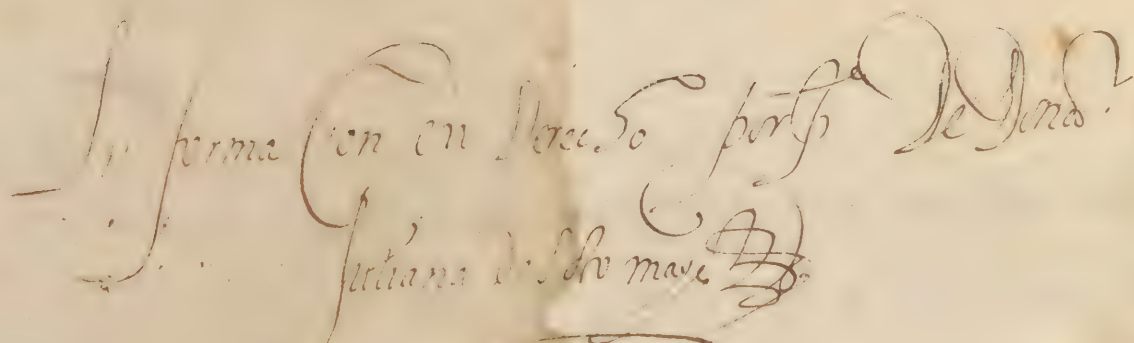 In forma Con en Derecho por pa De Dona
Juliana de Soto maior